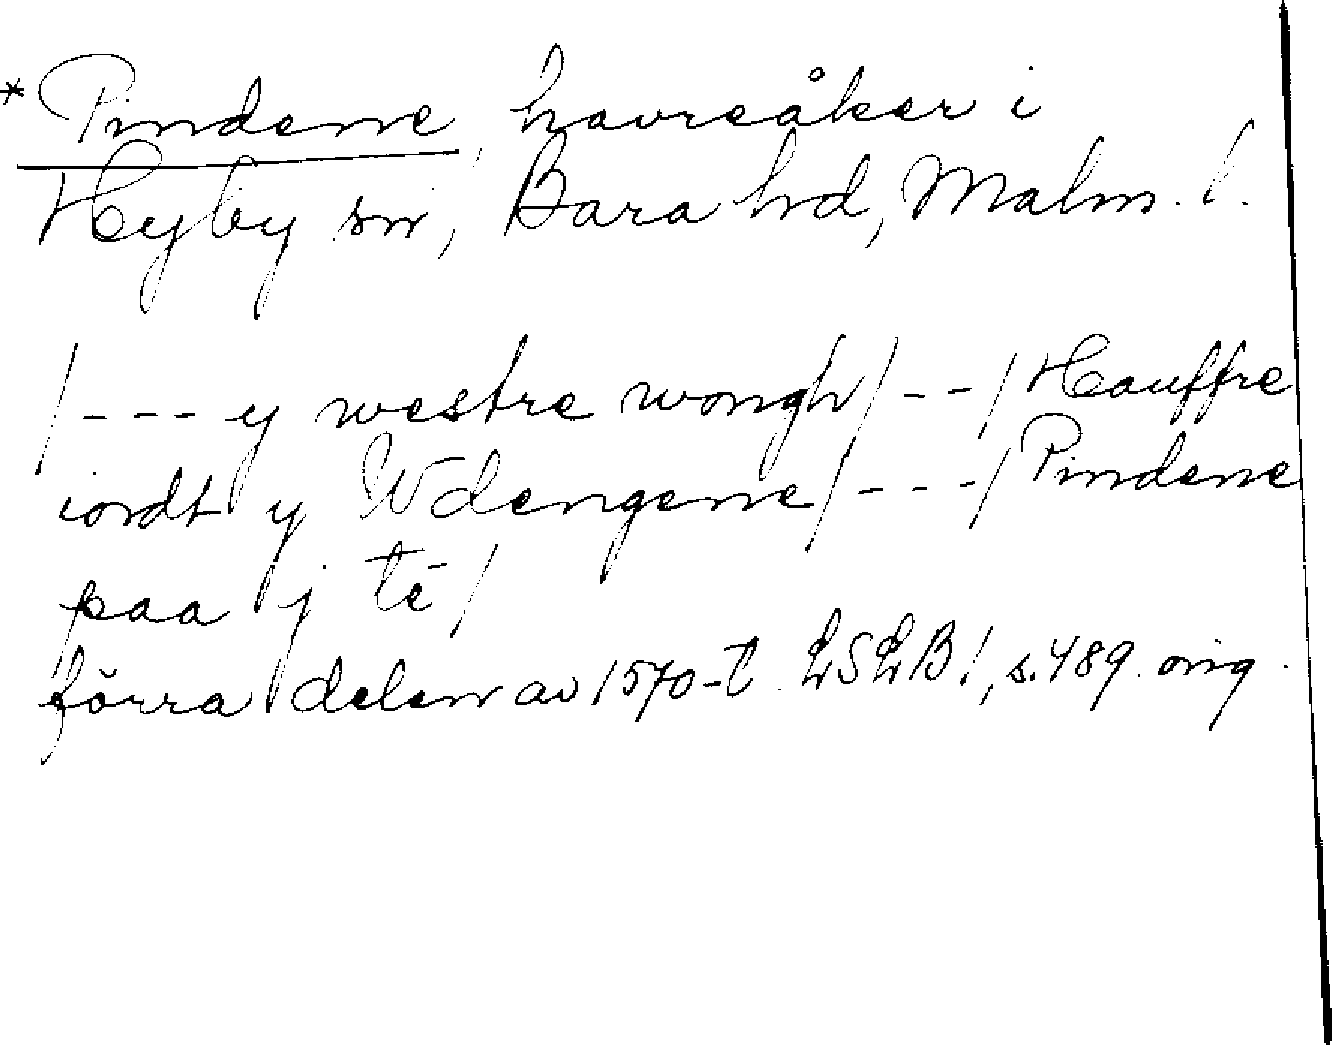 * Pindene, havreåker i
Hyby sn, Bara hd, Malm. l.
/--- y westre wongh/--/ Hauffre
iordt y Wdengene/---/ Pindene
paa j tē/
förra delen av 1570-t. LSLB!, s. 489. orig.